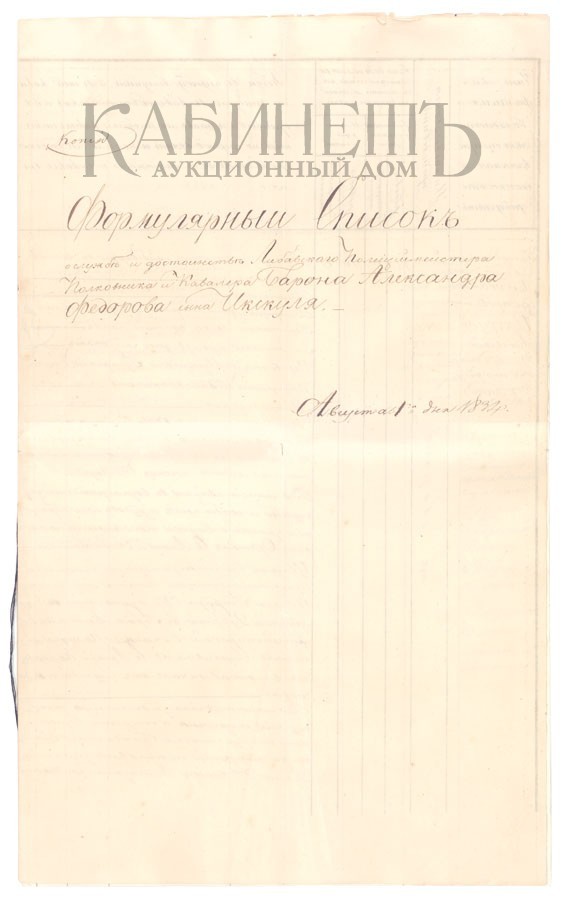 КАБИНЕТЪ
АУКЦИОННЫЙ ДОМ
Копія
Формулярный Списокъ
о службѣ и достоинствѣ Либавскаго Полицiймейстера
Полковника и Кавалера Барона Александра
Федорова сына Икскуля. —
Августа 1го дня 1834.